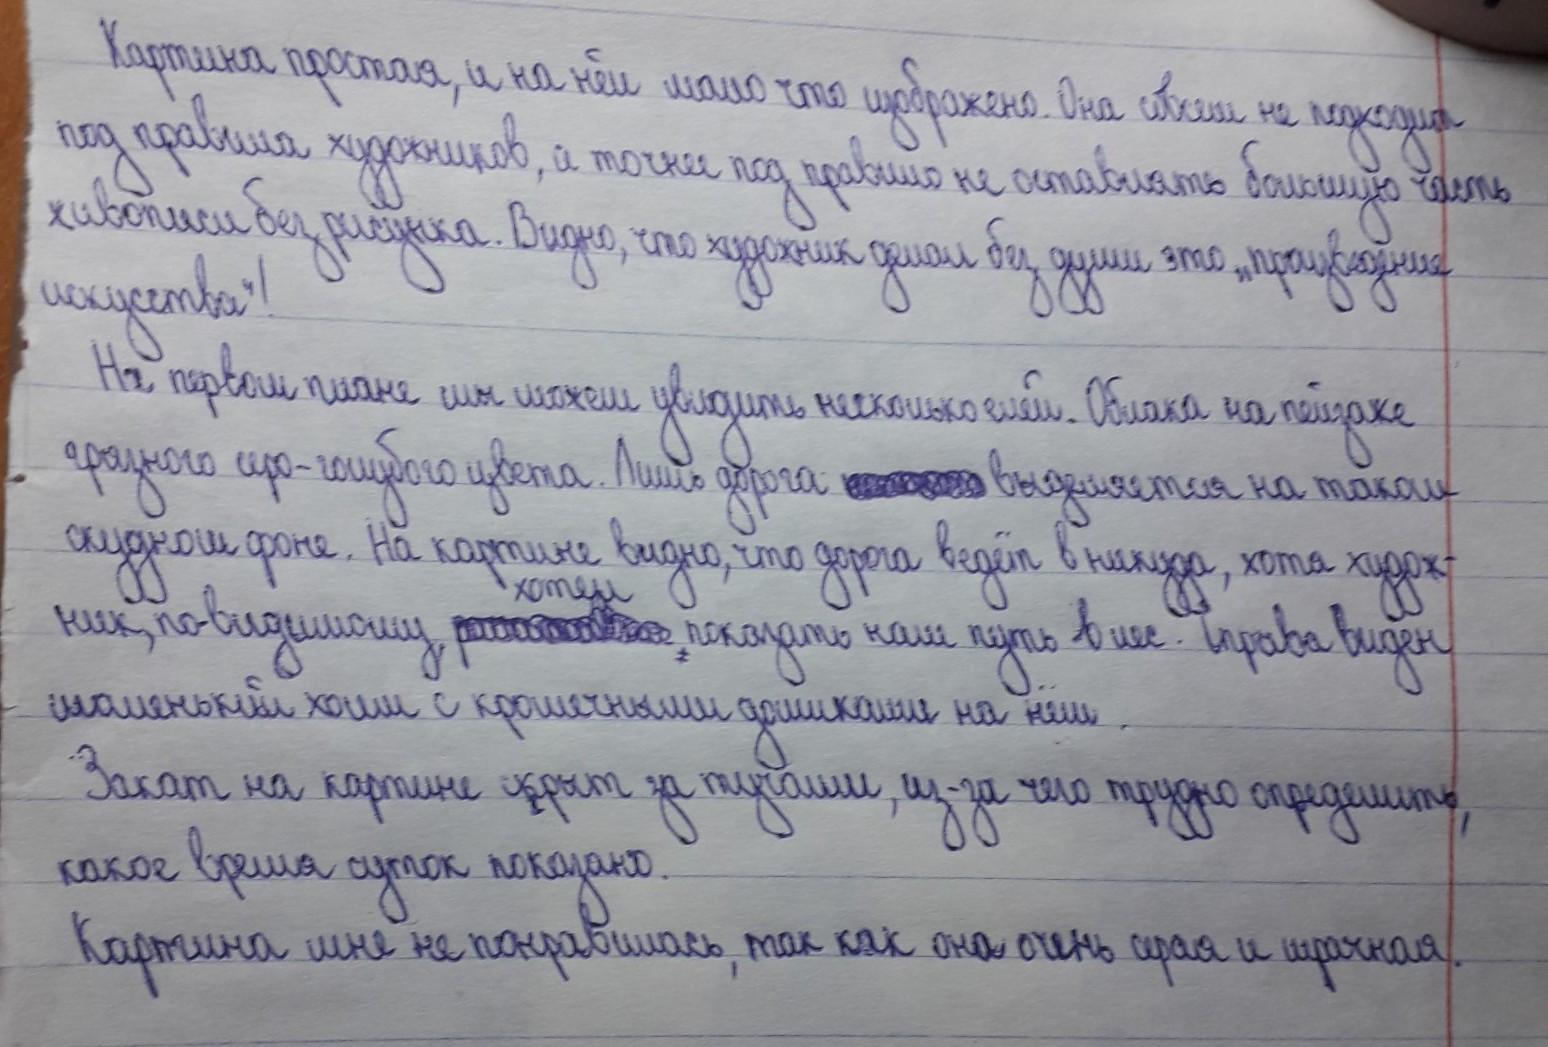 Картина простая, и на нём мало что изображено. Она совсем не подходит
под правила художников, а точнее под правило не оставлять большую часть
живописи без рисунка. Видно, что художник делал без души это „произведение
искусства“!
На первом плане мы можем увидить несколько елей. Облака на пейзаже
грязного серо-голубого цвета. Лишь дорога выделяется на таком
скудном фоне. На картине видно, что дорога ведёт в никуда, хотя худож-
ник, по-видимому, хотел показать нам путь в лес. Справа виден
маленький холм с крошечными домиками на нём.
Закат на картине скрыт за тучами, из-за чего трудно определить,
какое время суток показано.
Картина мне не понравилась, так как она очень серая и мрачная.